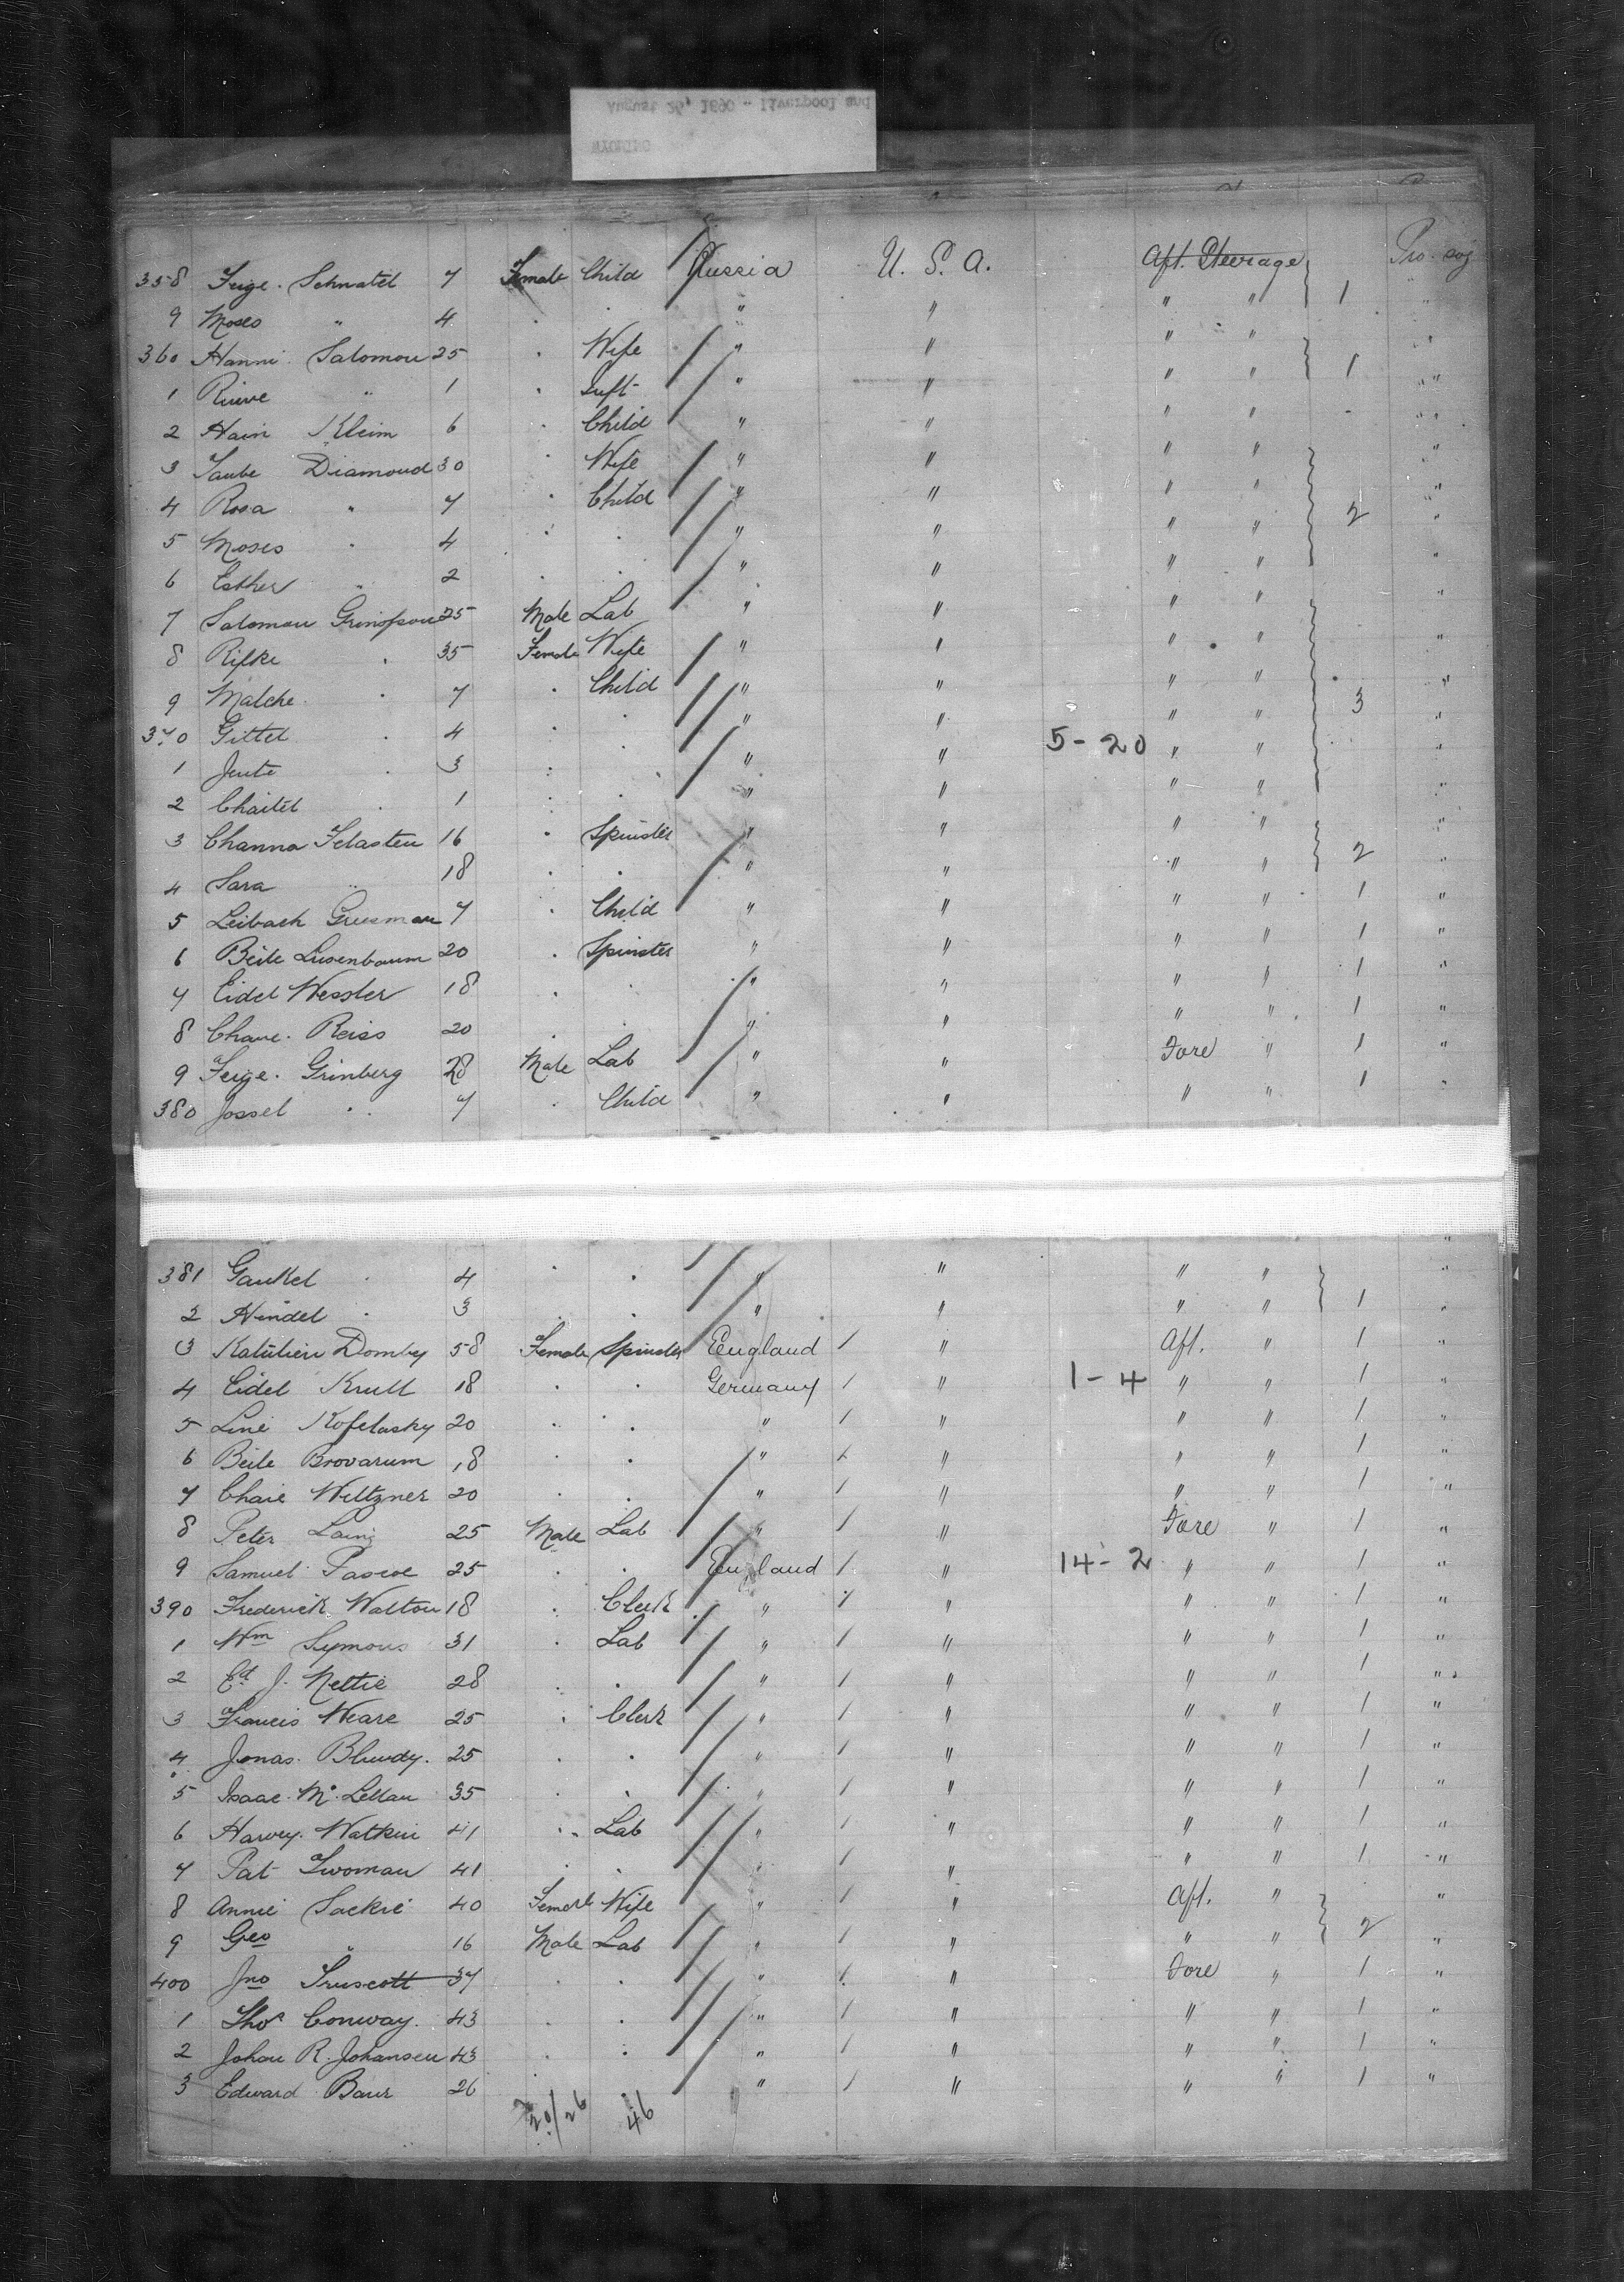 August 26, 1890 - Liverpool and
358 Feige Schnatel 7 Female Child Russia U. S. A. Aft. Steerage 1 Pro. soj
9 Moses " 4 " " " "
360 Hanni Salomon 25 Wife " " " "
1 " 1 Inft " " " " 1
2 Hain Kleim 6 Child " " " "
3 Taube Diamond 30 Wife " " " "
4 Rosa " 7 Child " " " "
5 Moses " 4 " " " " 2
6 Esther " 2 " " " "
7 Salomon 25 Male Lab " " " "
8 Rifke " 35 Female Wife " " " "
9 Malche " 7 Child " " " " 3
370 Gittel " 4 " " " "
1 Jente " 3 " " 5-20 " "
2 Chaitel " 1 " " " "
3 Channa Felasten 16 Spinster " " " "
4 Sara " 18 " " " " 2
5 Leibach Grusman 7 Child " " " " 1
6 Beile Lusenbaum 20 Spinster " " " " 1
7 Eidel Wessler 18 " " " " 1
8 Chave. Reiss 20 " " " " 1
9 Feige. Grinberg 28 Male Lab " " Fore " 1
380 Jossel " 7 Child " " " " 1
381 Gankel " 4 " " " "
2 Hindel " 3 " " " " 1
3 Domby 58 Female Spinster England / " Aft. " 1
4 Eidel Krull 18 Germany / " 1-4 " " 1
5 Line Kofelasky 20 " / " " " 1
6 Beile Brovarum 18 " / " " " 1
7 Chaie Weltzner 20 " / " " " 1
8 Peter Laing 25 Male Lab " / " Fore " 1
9 Samuel Pascoe 25 England / " 14-2 " " 1
390 Frederick Walton 18 Clerk " / " " " 1
1 Wm Symons 31 Lab " / " " " 1
2 Ed. J. Nettie 28 " / " " " 1
3 Francis Weare 25 Clerk " / " " " 1
4 Jonas. Blundy. 25 " / " " " 1
5 Isaac. Mc. Lellan 35 " / " " " 1
6 Harvey. Watkin 41 Lab " / " " " 1
7 Pat Twoman 41 " / " " " 1
8 Annie Sackrie 40 Female Wife " / " Aft. "
9 Geo " 16 Male Lab " / " " " 2
400 Jno Truscott 37 " / " Fore " 1
1 Thos Conway. 43 " / " " " 1
2 Johan R. Johansen 43 " / " " " 1
3 Edward Baur 26 " / " " " 1
20/26 46